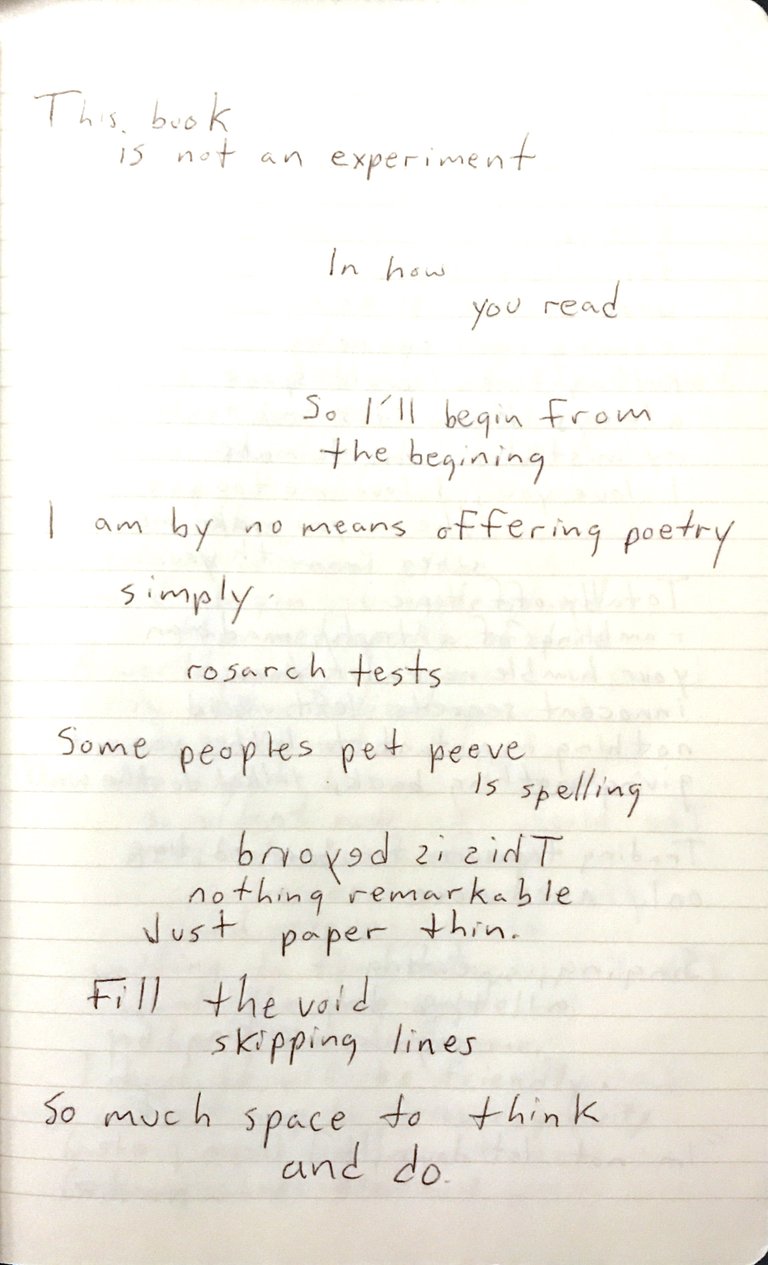 This. book
is not an experiment
In how
you read
So I'll begin from
the begining
I am by no means offering poetry
simply.
rosarch tests
Some peoples pet peeve
Is spelling
This is beyond
nothing remarkable
Just paper thin.
Fill the void
skipping lines
So much space to think
and do.